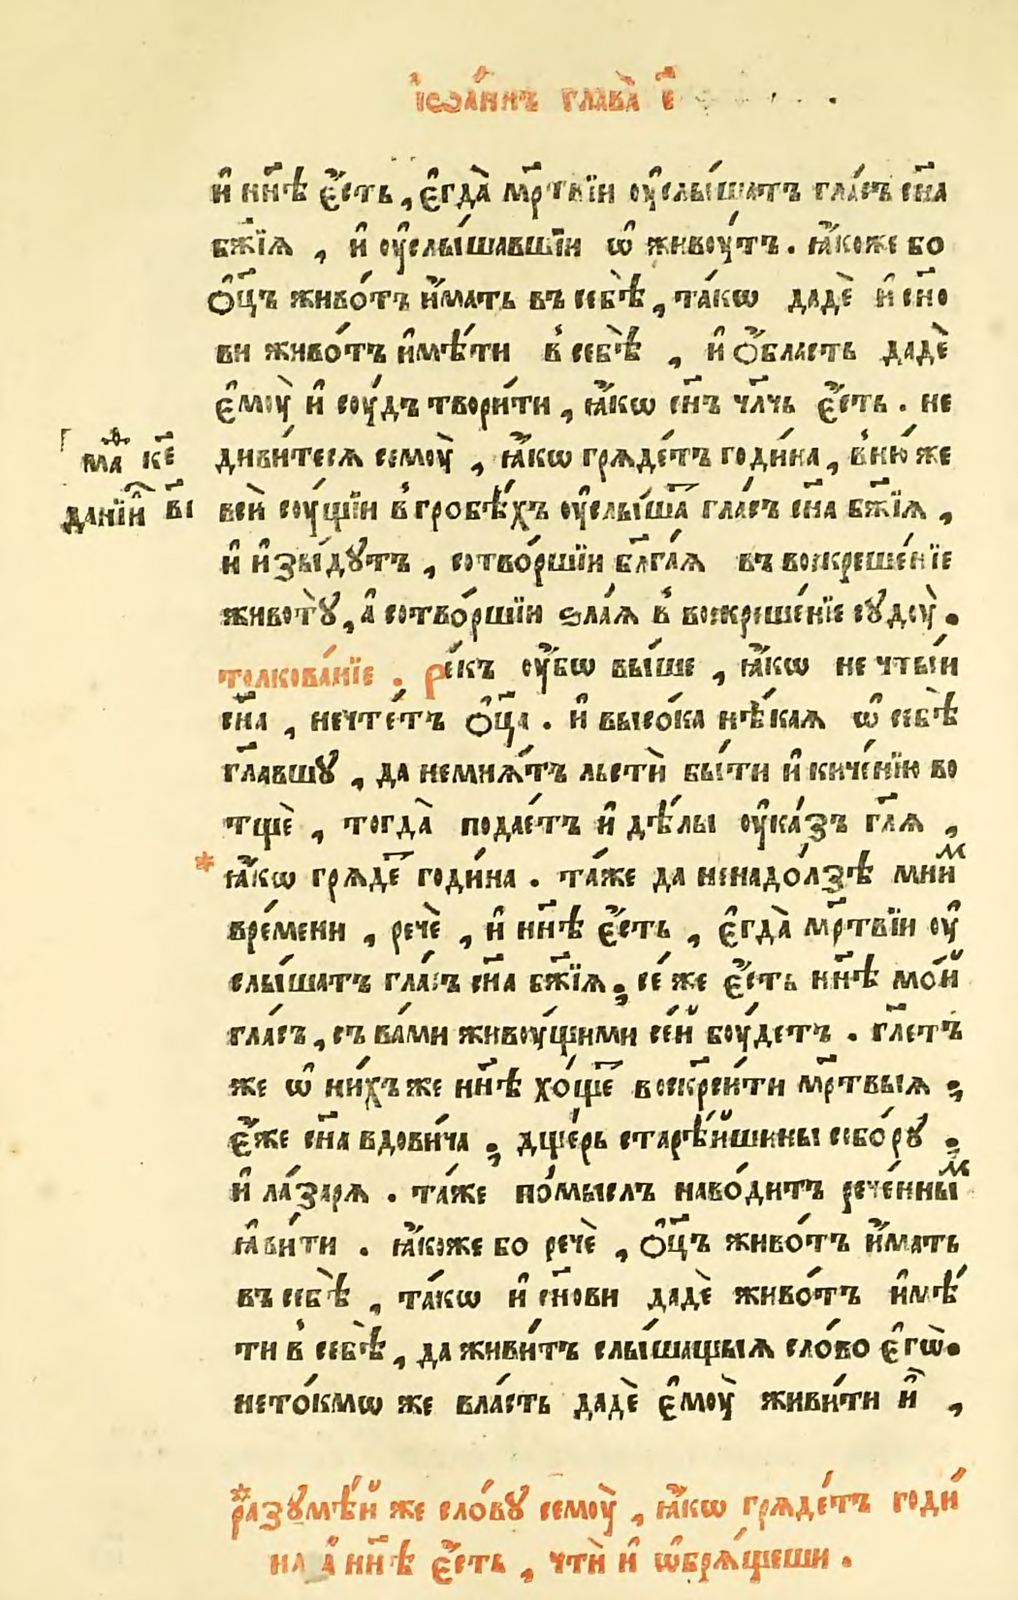 І҆ѡа́ннъ глава̀ є҃
и҆ нн҃ѣ є҆́сть, є҆гда̀ мр҃твїи оу҆слы́шатъ гла́съ сн҃а
бж҃їѧ, и҆ оу҆слы́шавшїи ѡ҆живоу́тъ. ꙗ҆́коже бо
ѻ҆ц҃ъ живо́тъ и҆́мать въ себѣ̀, та́кѡ дадѐ и҆ сн҃о
ви живо́тъ и҆мѣ́ти в̾ себѣ̀, и҆ ѻ҆́бласть дадѐ
є҆моу̀ и҆ соу́дъ твори́ти, ꙗ҆́кѡ сн҃ъ чл҃чь є҆́сть. не
диви́тесѧ семоу̀, ꙗ҆́кѡ грѧде́тъ годи́на, в̾ню́же
мѳ҃ а҃ к҃є
всѝ соу́щїи в̾ гробѣ́хъ оу҆слы́шат гла́съ сн҃а бж҃їѧ,
данїи҆л в҃і
и҆ и҆зы́дутъ, сотво́ршїи бл҃га́ѧ въ воскреше́нїе
живот̀ꙋ, а҆ сотво́ршїи ѕла́ѧ в̾ воскреше́нїе сꙋдоу̀.
толкова́нїе. ре́къ оу҆́бѡ вы́ше, ꙗ҆́кѡ не чты́и
сн҃а, не чте́тъ ѻ҆ц҃а. и҆ высо́ка нѣ́каѧ ѡ҆ себѣ̀
гл҃авшꙋ, да не мнѧ́тъ льстѝ бы́ти и҆ киче́нїю во
тщѐ, тогда̀ подае́тъ и҆ дѣ́лы оу҆ка́зъ гл҃ѧ,
* ꙗ҆́кѡ грѧде́т годи́на. та́же да не надо́лзѣ мнимⷨ
вре́мени, речѐ, и҆ нн҃ѣ є҆́сть, є҆гда̀ мр҃твїи оу҆
слы́шатъ гла́съ сн҃а бж҃їѧ; се́ же є҆́сть нн҃ѣ мо́й
гла́съ, съ ва́ми живоу́щими се́й боу́детъ. гл҃етъ
же ѡ҆ ни́хъже нн҃ѣ хо́щет воскр҃си́ти мр҃твыѧ;
є҆́же сн҃а вдови́ча; дще́рь старѣ́йшины собо́рꙋ;
и҆ ла́зарѧ. та́же по́мыслъ наво́дитъ рече́нныⷨ
ꙗ҆ви́ти. ꙗ҆́коже бо речѐ, ѻ҆ц҃ъ живо́тъ и҆́мать
въ себѣ̀, та́кѡ и҆ сн҃ови дадѐ живо́тъ и҆мѣ́
ти в̾ себѣ̀, да живи́тъ слы́шащыѧ сло́во є҆гѡ̀.
нето́кмѡ же вла́сть дадѐ є҆моу̀ живи́ти и҆̀,
* разꙋмѣ́й же сло́вꙋ семоу̀, ꙗ҆́кѡ грѧде́тъ годи́
на а҆ нн҃ѣ є҆́сть, чтѝ и҆ ѡ҆брѧ́щеши.